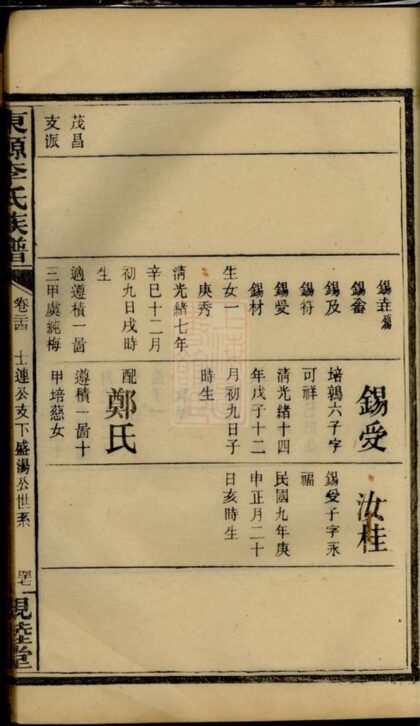 茂昌
支派
錫垚
錫畬
錫及
錫符
錫受
錫材
生女一
庚秀
清光緒七年
辛巳十二月
初九日戌時
生
適遵積一啚
三甲虞純梅
錫受
培鶉六子字
可祥
清光緒十四
年戊子十二
月初九日子
時生
配鄭氏
遵積一啚十
甲培慈女
汝桂
錫受子字永
福
民國九年庚
申正月二十
日亥時生
東源李氏族譜
卷
士蓮公支下盛湯公世系
堂